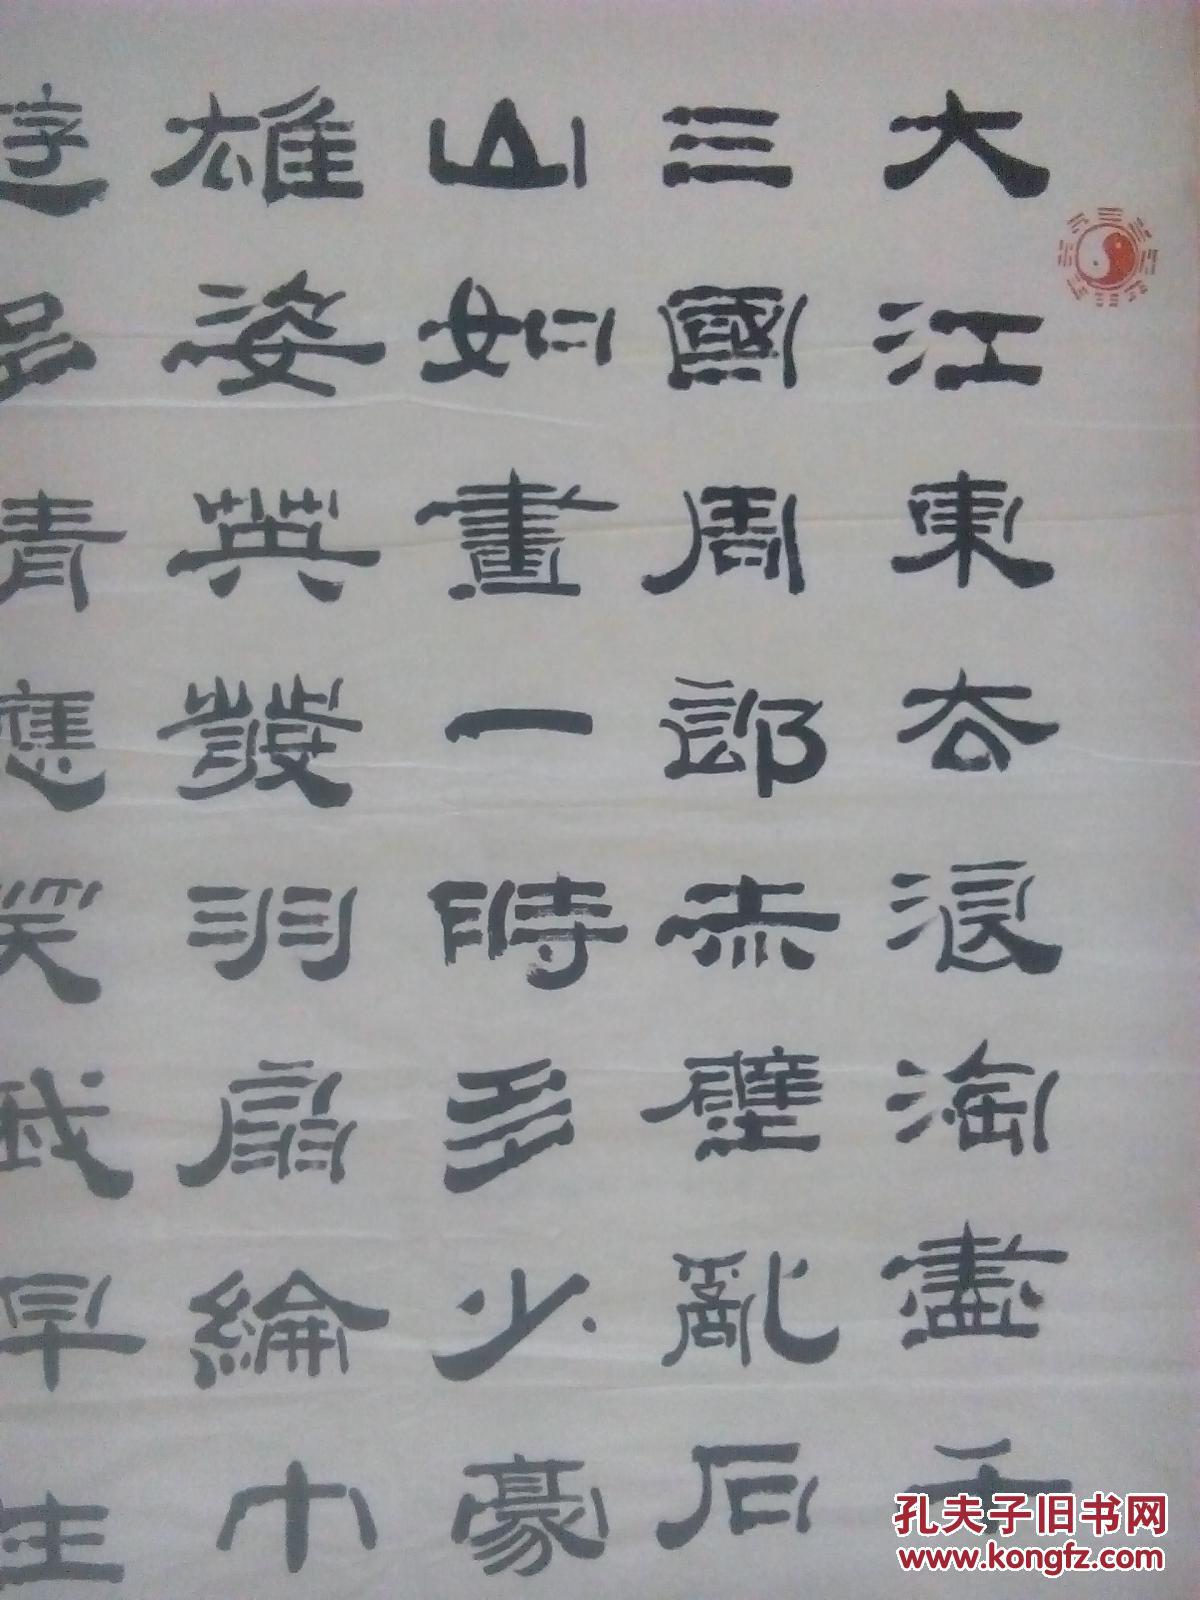 大江東去浪淘盡千
三國周郎赤壁亂石
山如畫一時多少豪
雄姿英發羽扇綸巾
遊多情應笑我早生
孔夫子旧书网
www.kongfz.com